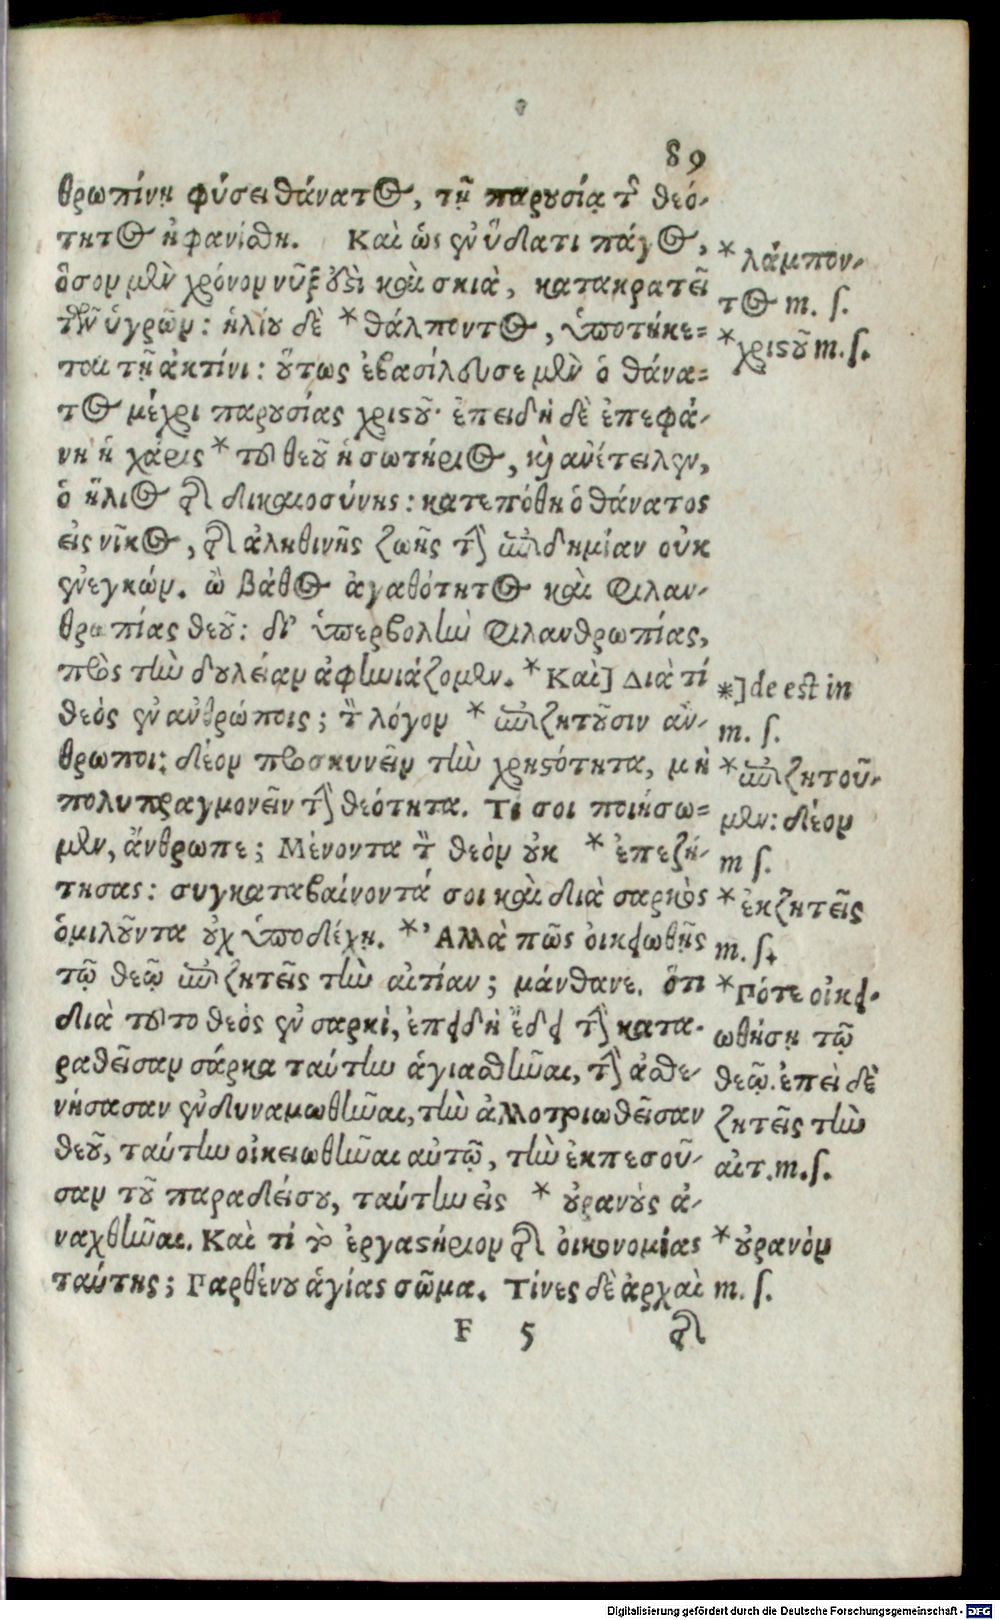 89
θρωπίνῃ φύσει θάνατος, τῇ παρουσίᾳ τῆς θεό-
τητος ἠφανίσθη. Καὶ ὡς ἐν ὕδατι πάγος,
ὅσον μὲν χρόνον νὺξ ἐστὶ καὶ σκιὰ, κατακρατεῖ
τῶν ὑγρῶν: ἡλίου δὲ * θάλποντος, ὑποτήκε=
ται τῇ ἀκτίνι: οὕτως ἐβασίλευσε μὲν ὁ θάνα=
τος μέχρι παρουσίας χριστοῦ· ἐπειδὴ δὲ ἐπεφά-
νη ἡ χάρις * τοῦ θεοῦ ἡ σωτήριος, καὶ ἀνέτειλεν,
ὁ ἥλιος τῆς δικαιοσύνης: κατεπόθη ὁ θάνατος
εἰς νῖκος, τῆς ἀληθινῆς ζωῆς τὴν ἐπιδημίαν οὐκ
ἐνεγκών. ὢ βάθος ἀγαθότητος καὶ φιλαν-
θρωπίας θεοῦ: δι' ὑπερβολὴν φιλανθρωπίας,
πρὸς τὴν δουλείαν ἀφηνιάζομεν. * Καὶ] Διὰ τί
θεὸς ἐν ἀνθρώποις; τὸν λόγον * ἐπιζητοῦσιν ἄν-
θρωποι: δέον προσκυνεῖν τὴν χρηστότητα, μὴ
πολυπραγμονεῖν τὴν θεότητα. Τί σοι ποιήσω=
μεν, ἄνθρωπε; Μένοντα τὸν θεὸν οὐκ * ἐπεζή-
τησας: συγκαταβαίνοντά σοι καὶ διὰ σαρκὸς
ὁμιλοῦντα οὐχ ὑποδέχῃ. * Ἀλλὰ πῶς οἰκειωθῇς
τῷ θεῷ ἐπιζητεῖς τὴν αἰτίαν; μάνθανε. ὅτι
διὰ τοῦτο θεὸς ἐν σαρκὶ, ἐπειδὴ ἔδει τὴν κατα-
ραθεῖσαν σάρκα ταύτην ἁγιασθῆναι, τὴν ἀσθε-
νήσασαν ἐνδυναμωθῆναι, τὴν ἀλλοτριωθεῖσαν
θεοῦ, ταύτην οἰκειωθῆναι αὐτῷ, τὴν ἐκπεσοῦ-
σαν τοῦ παραδείσου, ταύτην εἰς * οὐρανοὺς ἀ-
ναχθῆναι. Καὶ τί τὸ ἐργαστήριον τῆς οἰκονομίας
ταύτης; Παρθένου ἁγίας σῶμα. Τίνες δὲ ἀρχαὶ
F 5 τῆς
* λάμπον-
τος m. s.
* χριστοῦ m. s.
*] de est in
m. s.
* ἐπιζητοῦ-
μεν: δέον
m s.
* ἐκζητεῖς
m. s.
* Πότε οἰκει-
ωθήσῃ τῷ
θεῷ. ἐπεὶ δὲ
ζητεῖς τὴν
αἰτ. m. s.
* οὐρανὸν
m. s.
Digitalisierung gefördert durch die Deutsche Forschungsgemeinschaft - DFG